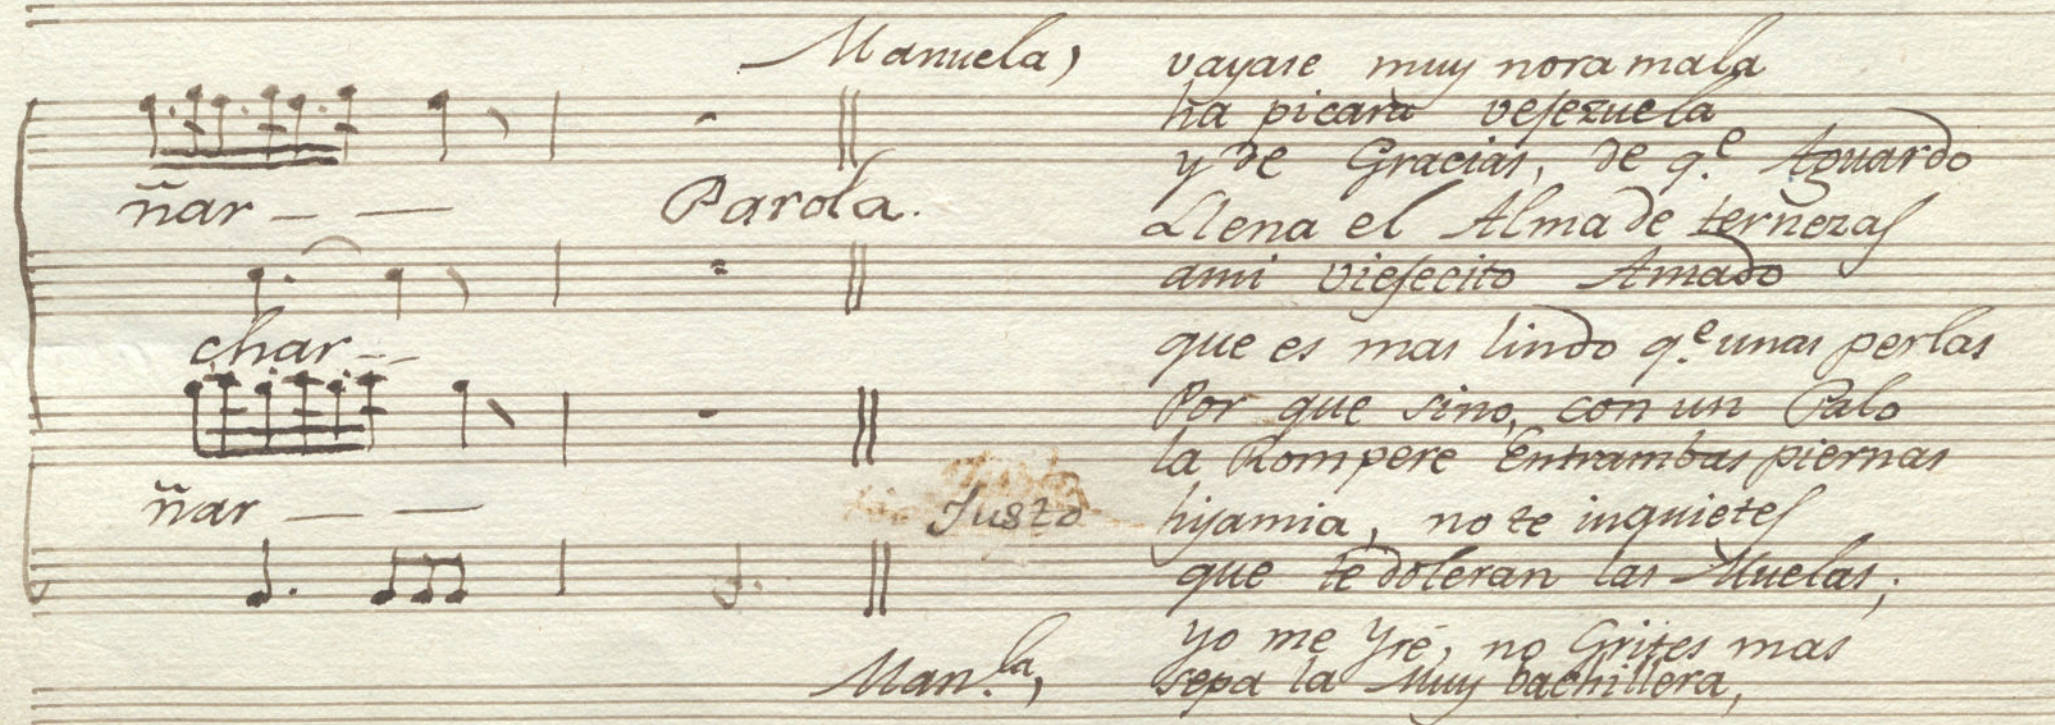 Manuela, vayase muy nora mala
ha picara vejezuela
y de Gracias, de q.e Aguardo
ñar - - Parola.
Llena el Alma de ternezas
ami viejecito Amado
char - -
que es mas lindo q.e unas perlas
Por que sino, con un Palo
la Rompere Entrambas piernas
ñar - - - Justo hijamia, no te inquietes
que te doleran las Muelas,
yo me Yré, no Grites mas
Man.la, sepa la Muy bachillera,